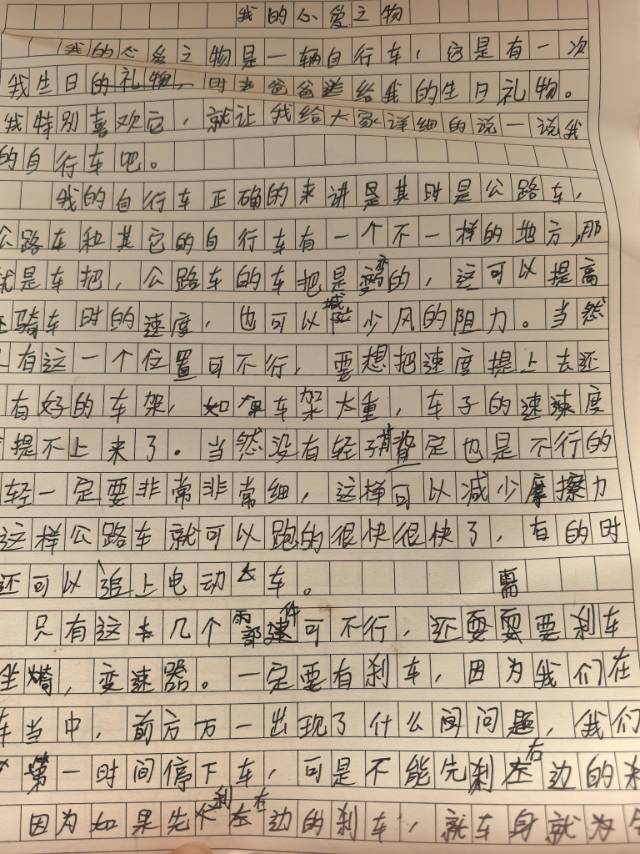 我的心爱之物
我的心爱之物是一辆自行车，这是有一次
我生日的礼物，时爸爸送给我的生日礼物。
我特别喜欢它，就让我给大家详细的说一说我
的自行车吧。
我的自行车正确的来讲是其时是公路车，
公路车和其它的自行车有一个不一样的地方，那
就是车把，公路车的车把是弯的，这可以提高
骑车时的速度，也可以减少风的阻力。当然
有这一个位置可不行，要想把速度提上去还
有好的车架，如果车架太重，车子的速度
提不上来了。当然没有轻肯定也是不行的
轻一定要非常非常细，这样可以减少摩擦力
这样公路车就可以跑的很快很快了，有的时
还可以追上电动车。
只有这几个部件可不行，还需要刹车
坐椅，变速器。一定要有刹车，因为我们在
车当中，前方万一出现了什么问题，我们
第一时间停下车，可是不能先刹右边的刹
因为如果先刹右边的刹车，就车身就为